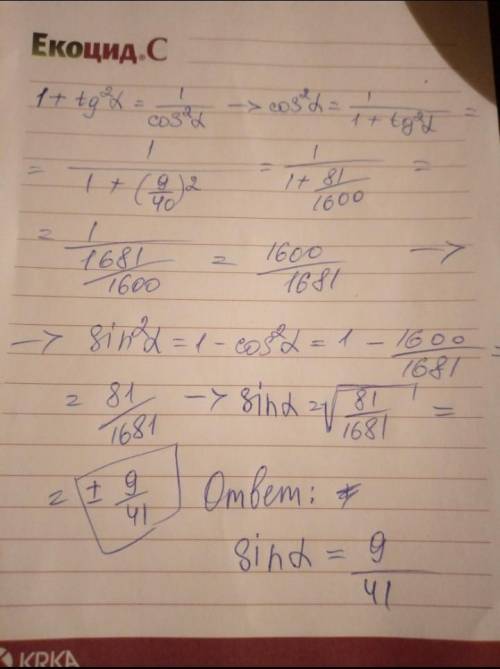 Екоцид.С
1 + tg²α = 1/cos²α → cos²α = 1/(1 + tg²α) =
= 1/(1 + (9/40)²) = 1/(1 + 81/1600) =
= 1/(1681/1600) = 1600/1681 →
→ sin²α = 1 - cos²α = 1 - 1600/1681 =
= 81/1681 → sinα = √(81/1681) =
= ± 9/41 Ответ:
sinα = 9/41
KRKA